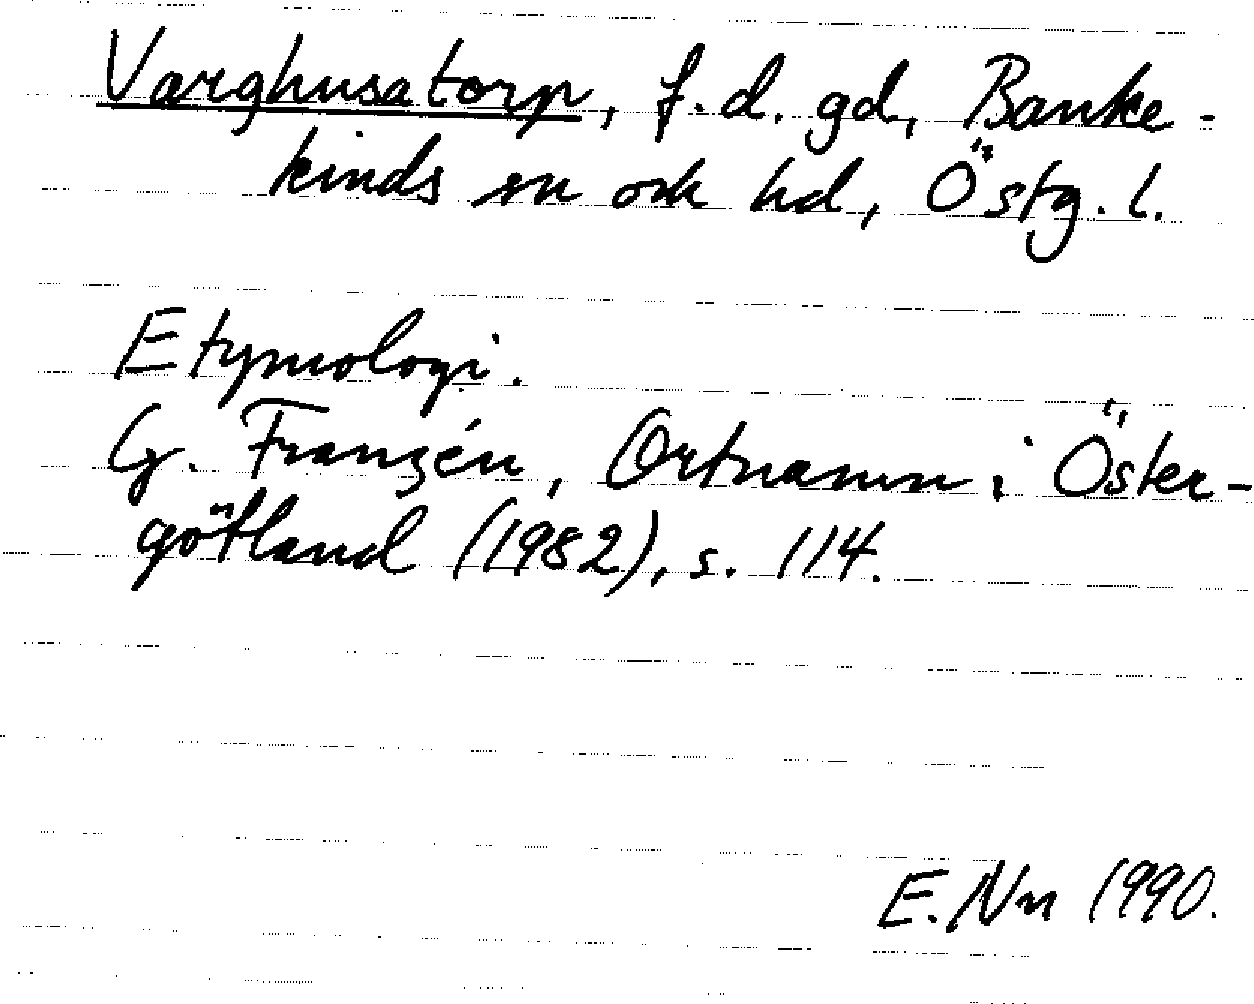 Varghusatorp, f.d. gd, Banke-
kinds sn och hd, Östg. l.
Etymologi.
G. Franzén, Ortnamn i Öster-
götland (1982), s. 114.
E. Nn 1990.